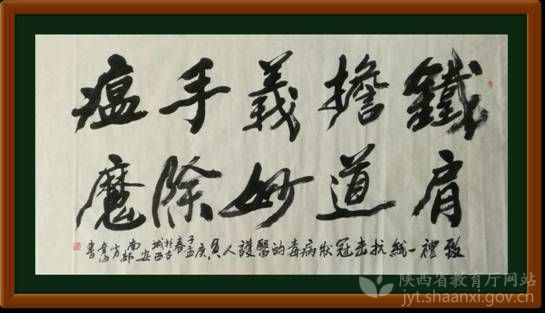 鐵肩
擔道
義妙
手除
瘟魔
致禮一線抗击冠狀病毒的醫護人員庚子孟春於古城西安南郊
書
陕西省教育厅网站
jyt.shaanxi.gov.cn